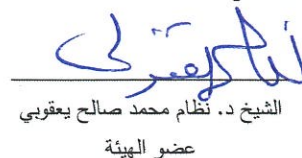 الشيخ د. نظام محمد صالح يعقوبي
عضو الهيئة